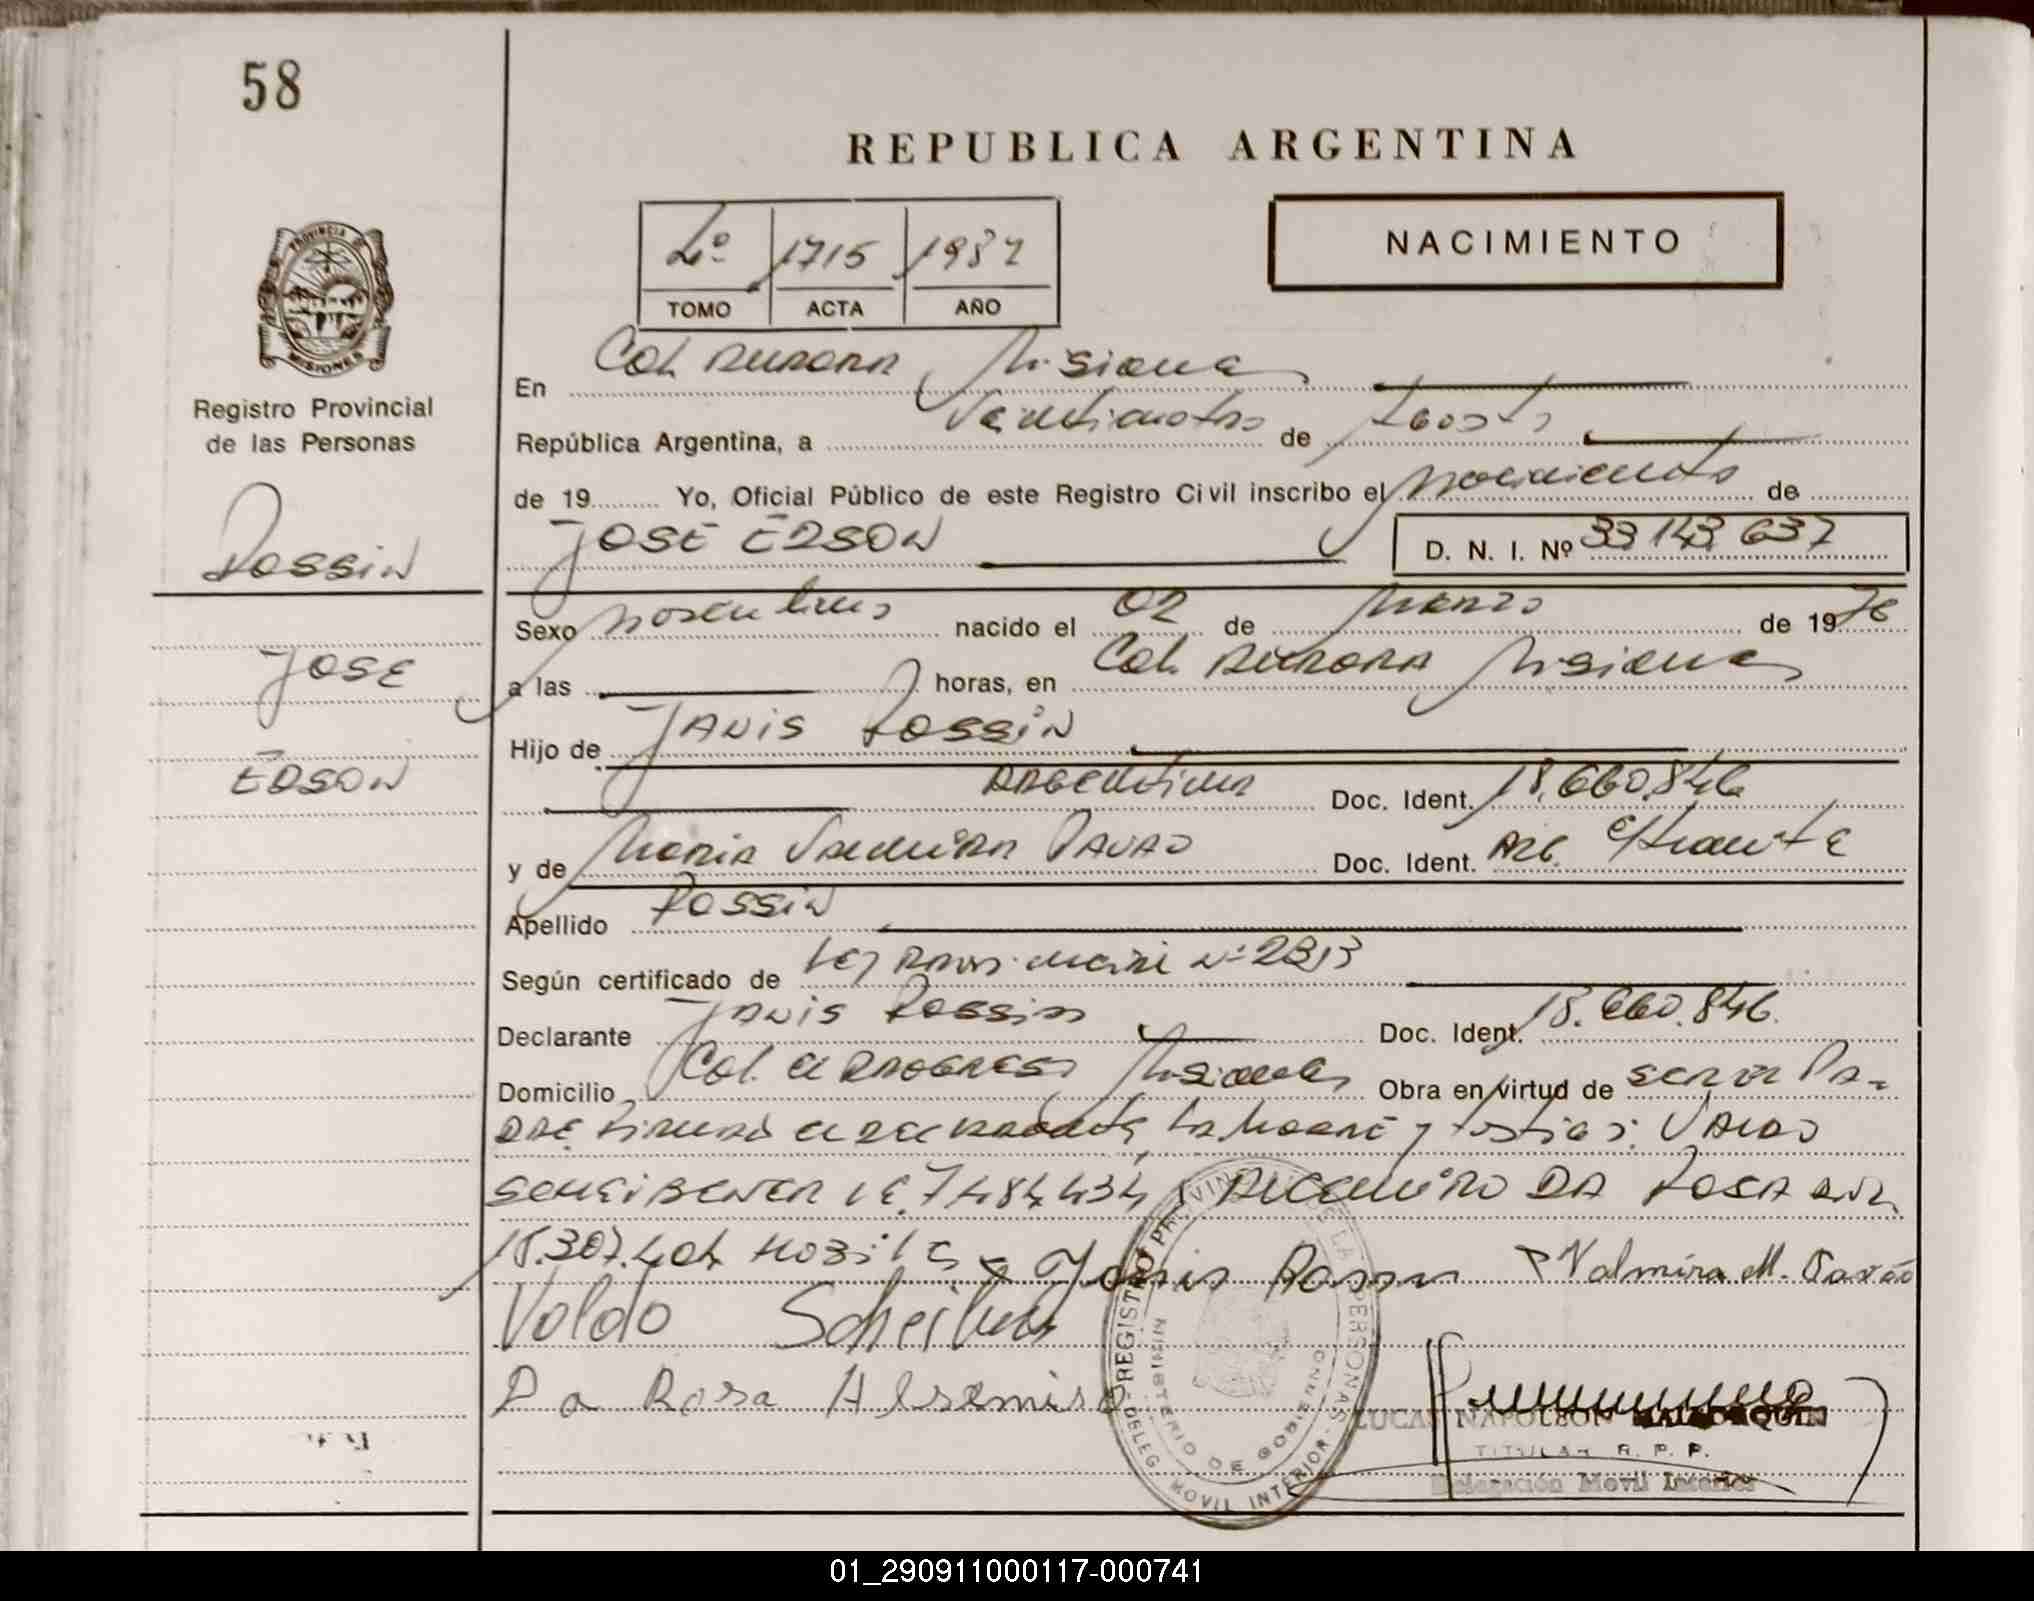 58
REPUBLICA ARGENTINA
4º 1715 1987
TOMO ACTA AÑO
NACIMIENTO
PROVINCIA DE
MISIONES
Registro Provincial
de las Personas
En Col. Aurora Misiones
República Argentina, a Veinticuatro de Agosto
de 19 Yo, Oficial Público de este Registro Civil inscribo el nacimiento de
JOSE EDSON D. N. I. Nº 33 143 637
Rossin
JOSE
EDSON
Sexo masculino nacido el 02 de Marzo de 1976
a las horas, en Col. Aurora Misiones
Hijo de JANIS Rossin
Argentina Doc. Ident. 18.660.846
y de Maria Valmira Pavao Doc. Ident. Arg.
Apellido Rossin
Según certificado de Ley
Declarante JANIS Rossin Doc. Ident. 18.660.846.
Domicilio Col. el Progreso Misiones Obra en virtud de ser el Pa-
dre el declarante, la Madre y testigos: Valdo
Scheibener 7484434 y Alcemiro DA Rosa
Janis Rossin Valmira M. Pavão
Valdo
Da Rosa Alsemiro
REGISTRO PROVINCIAL DE LAS PERSONAS
MINISTERIO DE GOBIERNO
DELEG. MOVIL INTERIOR
LUCAS NAPOLEON
TITULAR R. P. P.
Delegación Movil Interior
01_290911000117-000741